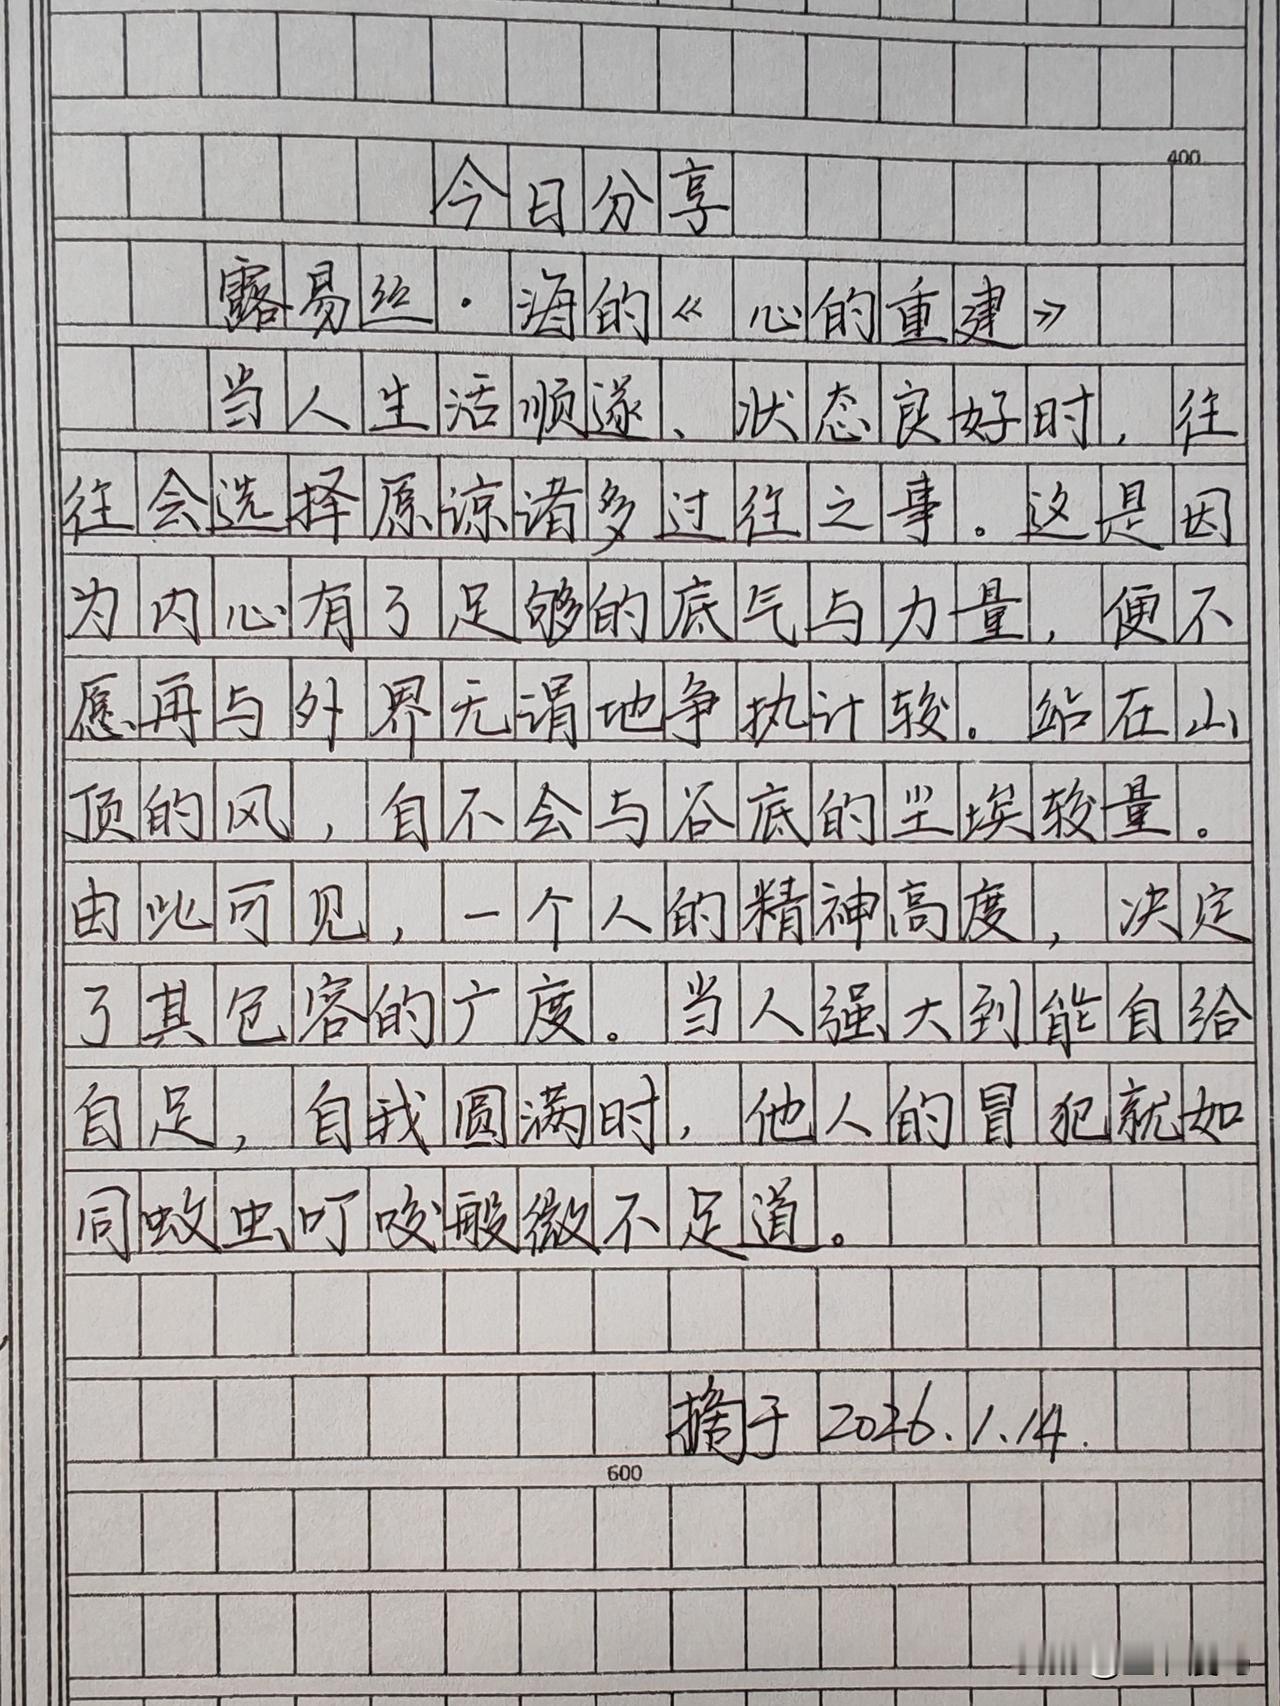 400
今日分享
露易丝·海的《心的重建》
当人生活顺遂、状态良好时，往
往会选择原谅诸多过往之事。这是因
为内心有了足够的底气与力量，便不
愿再与外界无谓地争执计较。站在山
顶的风，自不会与谷底的尘埃较量。
由此可见，一个人的精神高度，决定
了其包容的广度。当人强大到能自给
自足，自我圆满时，他人的冒犯就如
同蚊虫叮咬般微不足道。
摘于2026.1.14.
600